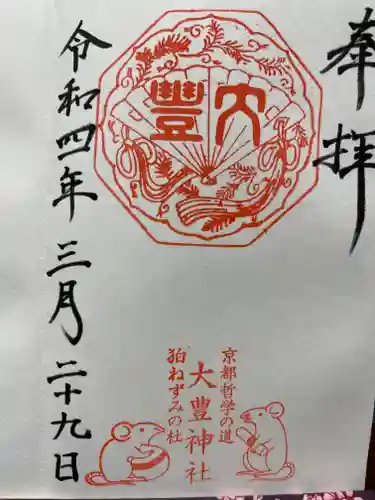 奉拝
大豊
京都哲学の道
大豊神社
狛ねずみの社
令和四年三月二十九日